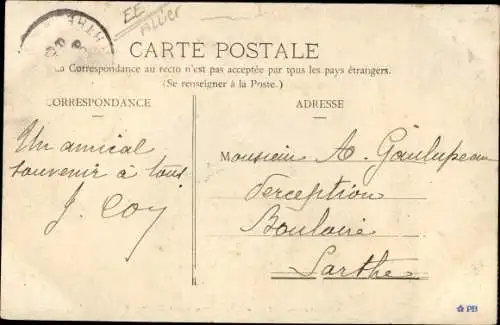 EE
Allier
CARTE POSTALE
La Correspondance au recto n'est pas acceptée par tous les pays étrangers.
(Se renseigner à la Poste.)
CORRESPONDANCE
ADRESSE
Un amical
souvenir à tous
J. Coy
Monsieur A. Goulupeau
Perception
Bouloire
Sarthe
PB